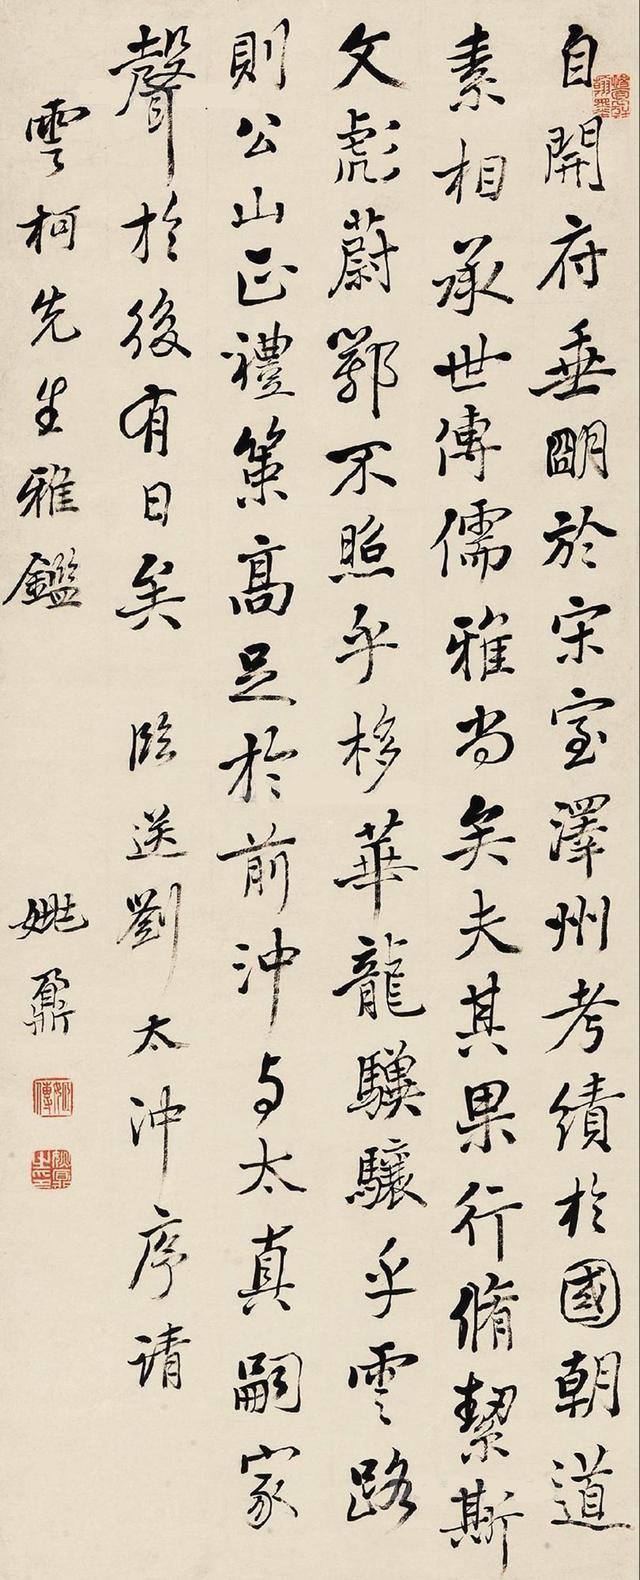 自開府垂朙於宋室澤州考績於國朝道
素相承世傳儒雅尚矣夫其果行脩絜斯
文彪蔚鄂不照乎移華龍驥驤乎雲路
則公山正禮策高足於前沖与太真嗣家
聲於後有日矣 臨送劉太沖序請
雲柯先生雅鑑
姚鼐